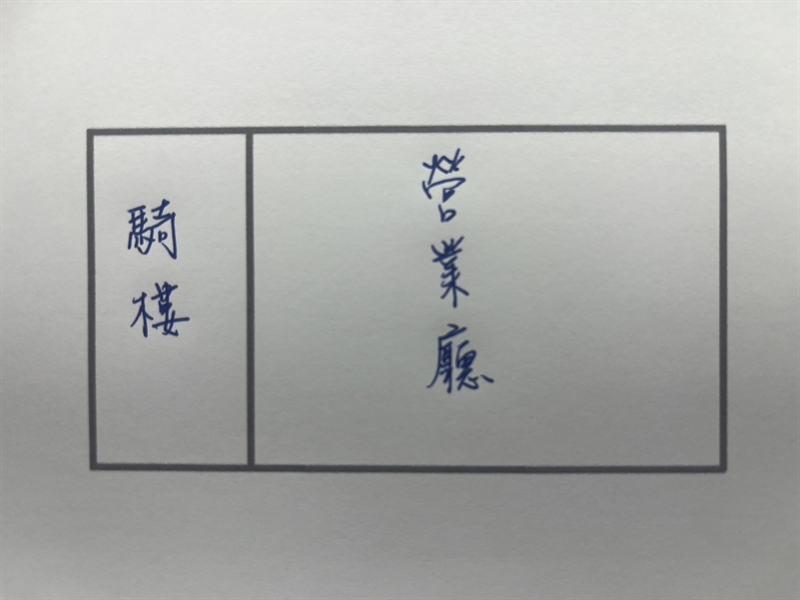 騎樓
營業廳